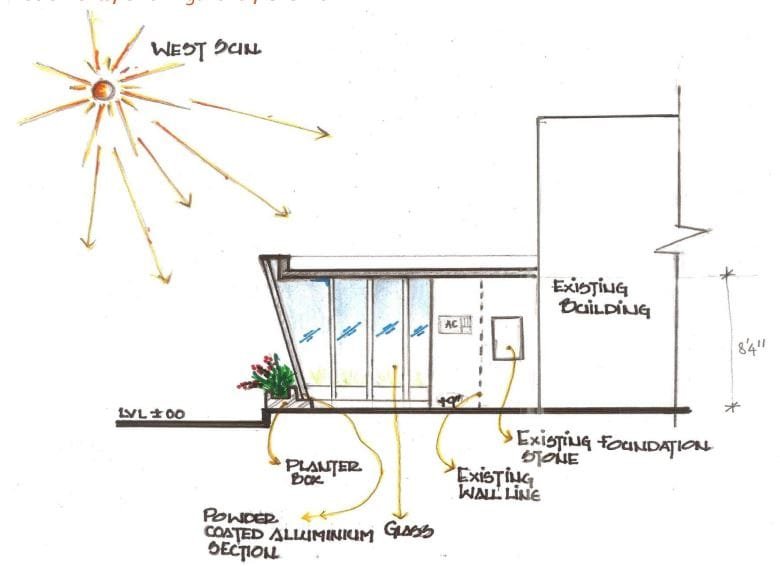 WEST SUN
EXISTING
BUILDING
AC
8'4"
+9"
LVL ±00
EXISTING FOUNDATION
STONE
PLANTER
BOX
EXISTING
WALL LINE
POWDER
COATED ALLUMINIUM
SECTION
GLASS